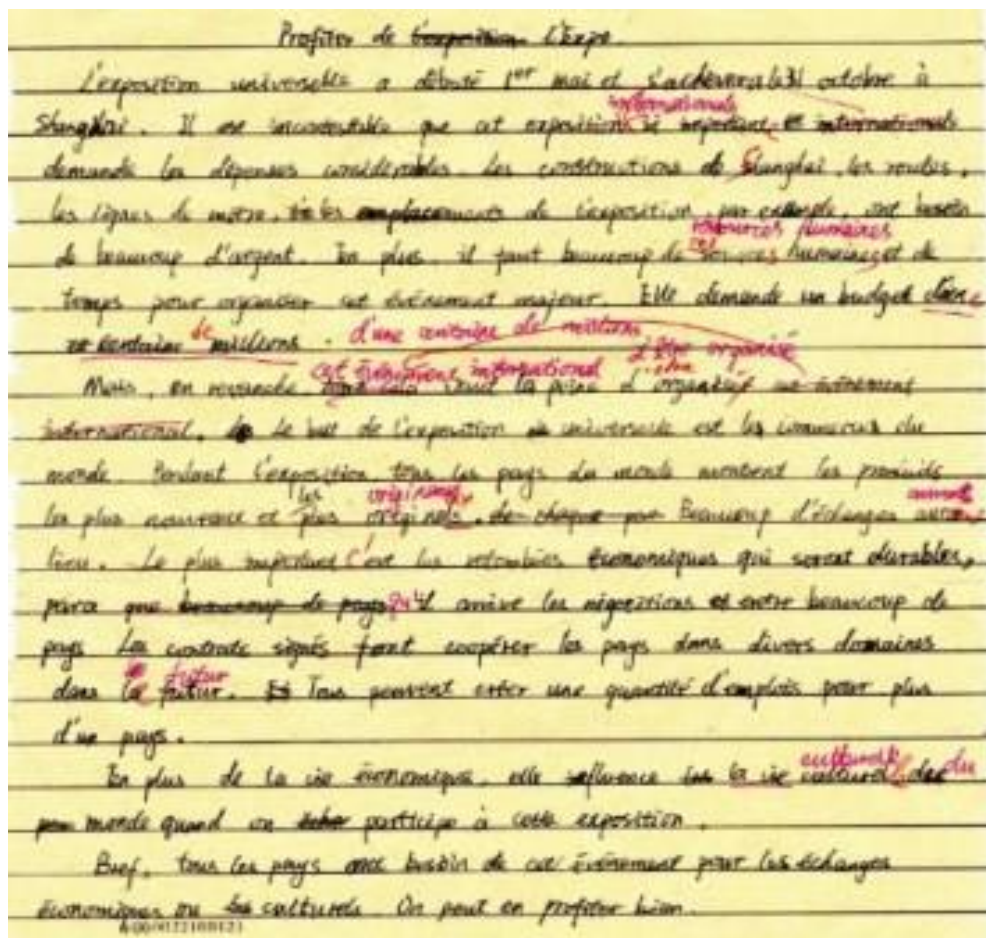 Profiter de l'exposition l'Expo.
L'exposition universelle a débuté 1er mai et s'achèvera 31 octobre à
internationale
Shanghai. Il est incontestable que cet exposition si important et international
demande les dépenses considérables. Les constructions de Shanghai, les routes,
les lignes de métro, les emplacements de l'exposition, par exemple, ont besoin
ressources humaines
de beaucoup d'argent. En plus, il faut beaucoup de humaines et de
temps pour organiser cet événement majeur. Elle demande un budget
centaine de millions. d'une centaine de millions
cet événement international d'être organisé
Mais, en revanche, vaut la peine d'organiser un événement
international. Le but de l'exposition universelle est les commerces du
monde. Pendant l'exposition, tous les pays du monde montrent les produits
les originaux auront
les plus nouveaux et plus originels. de chaque Beaucoup d'échanges
lieu. Le plus important c'est les retombées économiques qui seront durables,
parce que beaucoup de pays qu'il arrive les négociations et entre beaucoup de
pays. Les contrats signés font coopérer les pays dans divers domaines
futur
dans le futur. Et Tous peuvent créer une quantité d'emplois pour plus
d'un pays.
culturelle du
En plus de la vie économique, elle influence la vie culturel
monde quand on participe à cette exposition.
Bref, tous les pays ont besoin de cet événement pour les échanges
économiques ou les culturels. On peut en profiter bien.